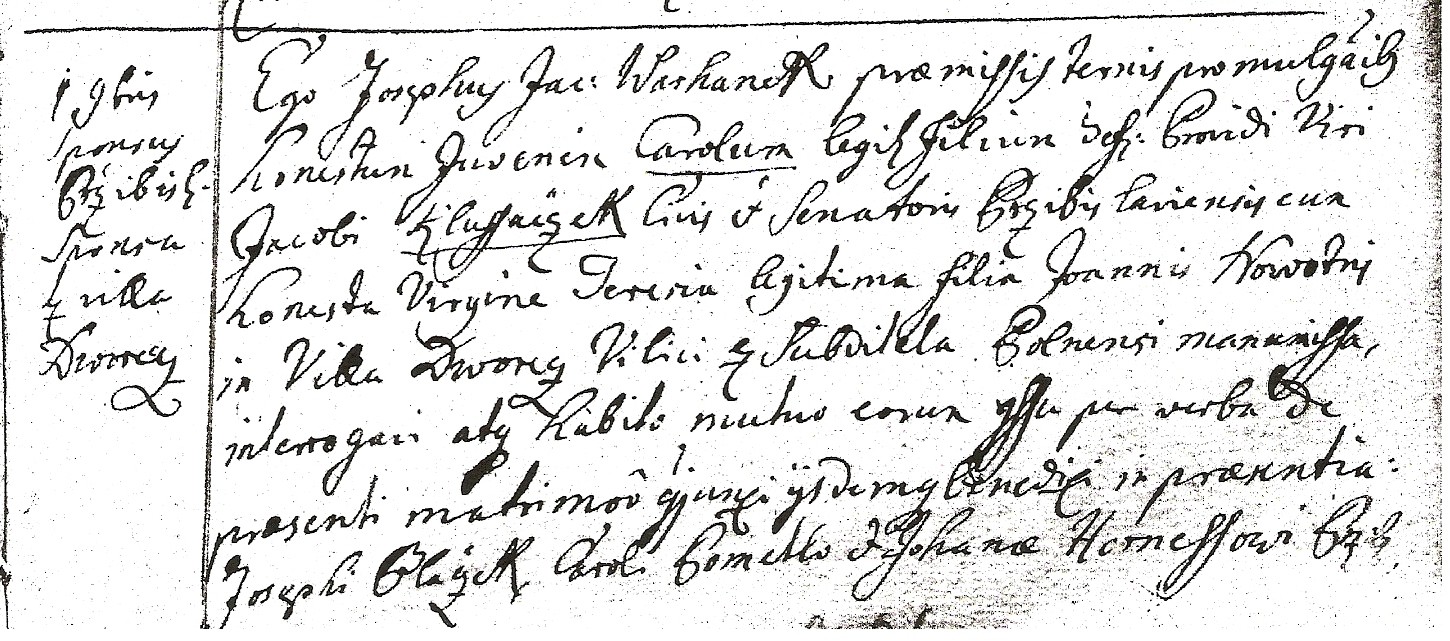 1 9bris
Sponsus
Przibisl:
Sponsa
ex villa
Dworecz
Ego Josephus Jac: Warhanek præmissis ternis promulgãib9
honestum Juvenem Carolum legit filium def: Providi Viri
Jacobi Hlussiczek Civis et Senatoris Przibislaviensis cum
honesta Virgine Teresia legitima filia Joannis Nowotni
in Villa Dworecz Vilici ex Subditela Polnensi manumissa,
interrogavi atq habito mutuo eorum 9ssu per verba de
præsenti matrimoõ 9junxi ijsdemq benedixi in præsentia:
Josephi Blažek, Caroli et Johanæ Przib: